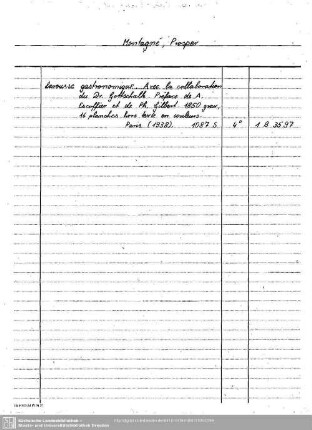 Montagné, Prosper
Larousse gastronomique. Avec la collaboration
du Dr. Gottschalk. Préface de A.
Escoffier et de Ph. Gilbert. 1850 grav,
16 planches hors texte en couleurs.
Paris (1938). 1087 S. 4° 1 B 3597
Sächsische Landesbibliothek -
Staats- und Universitätsbibliothek Dresden